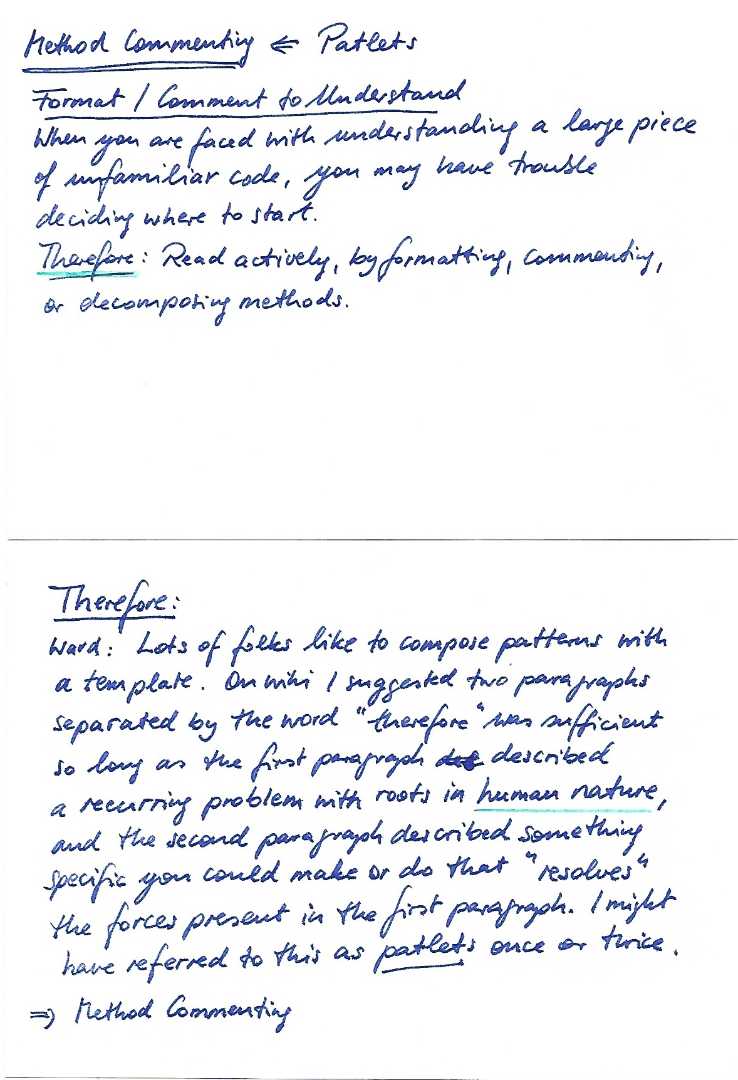 Method Commenting ⇐ Patlets
Format / Comment to Understand
When you are faced with understanding a large piece
of unfamiliar code, you may have trouble
deciding where to start.
Therefore: Read actively, by formatting, commenting,
or decomposing methods.
Therefore:
Ward: Lots of folks like to compose patterns with
a template. On wiki I suggested two paragraphs
separated by the word "therefore" was sufficient
so long as the first paragraph described
a recurring problem with roots in human nature,
and the second paragraph described something
specific you could make or do that "resolves"
the forces present in the first paragraph. I might
have referred to this as patlets once or twice.
⇒ Method Commenting